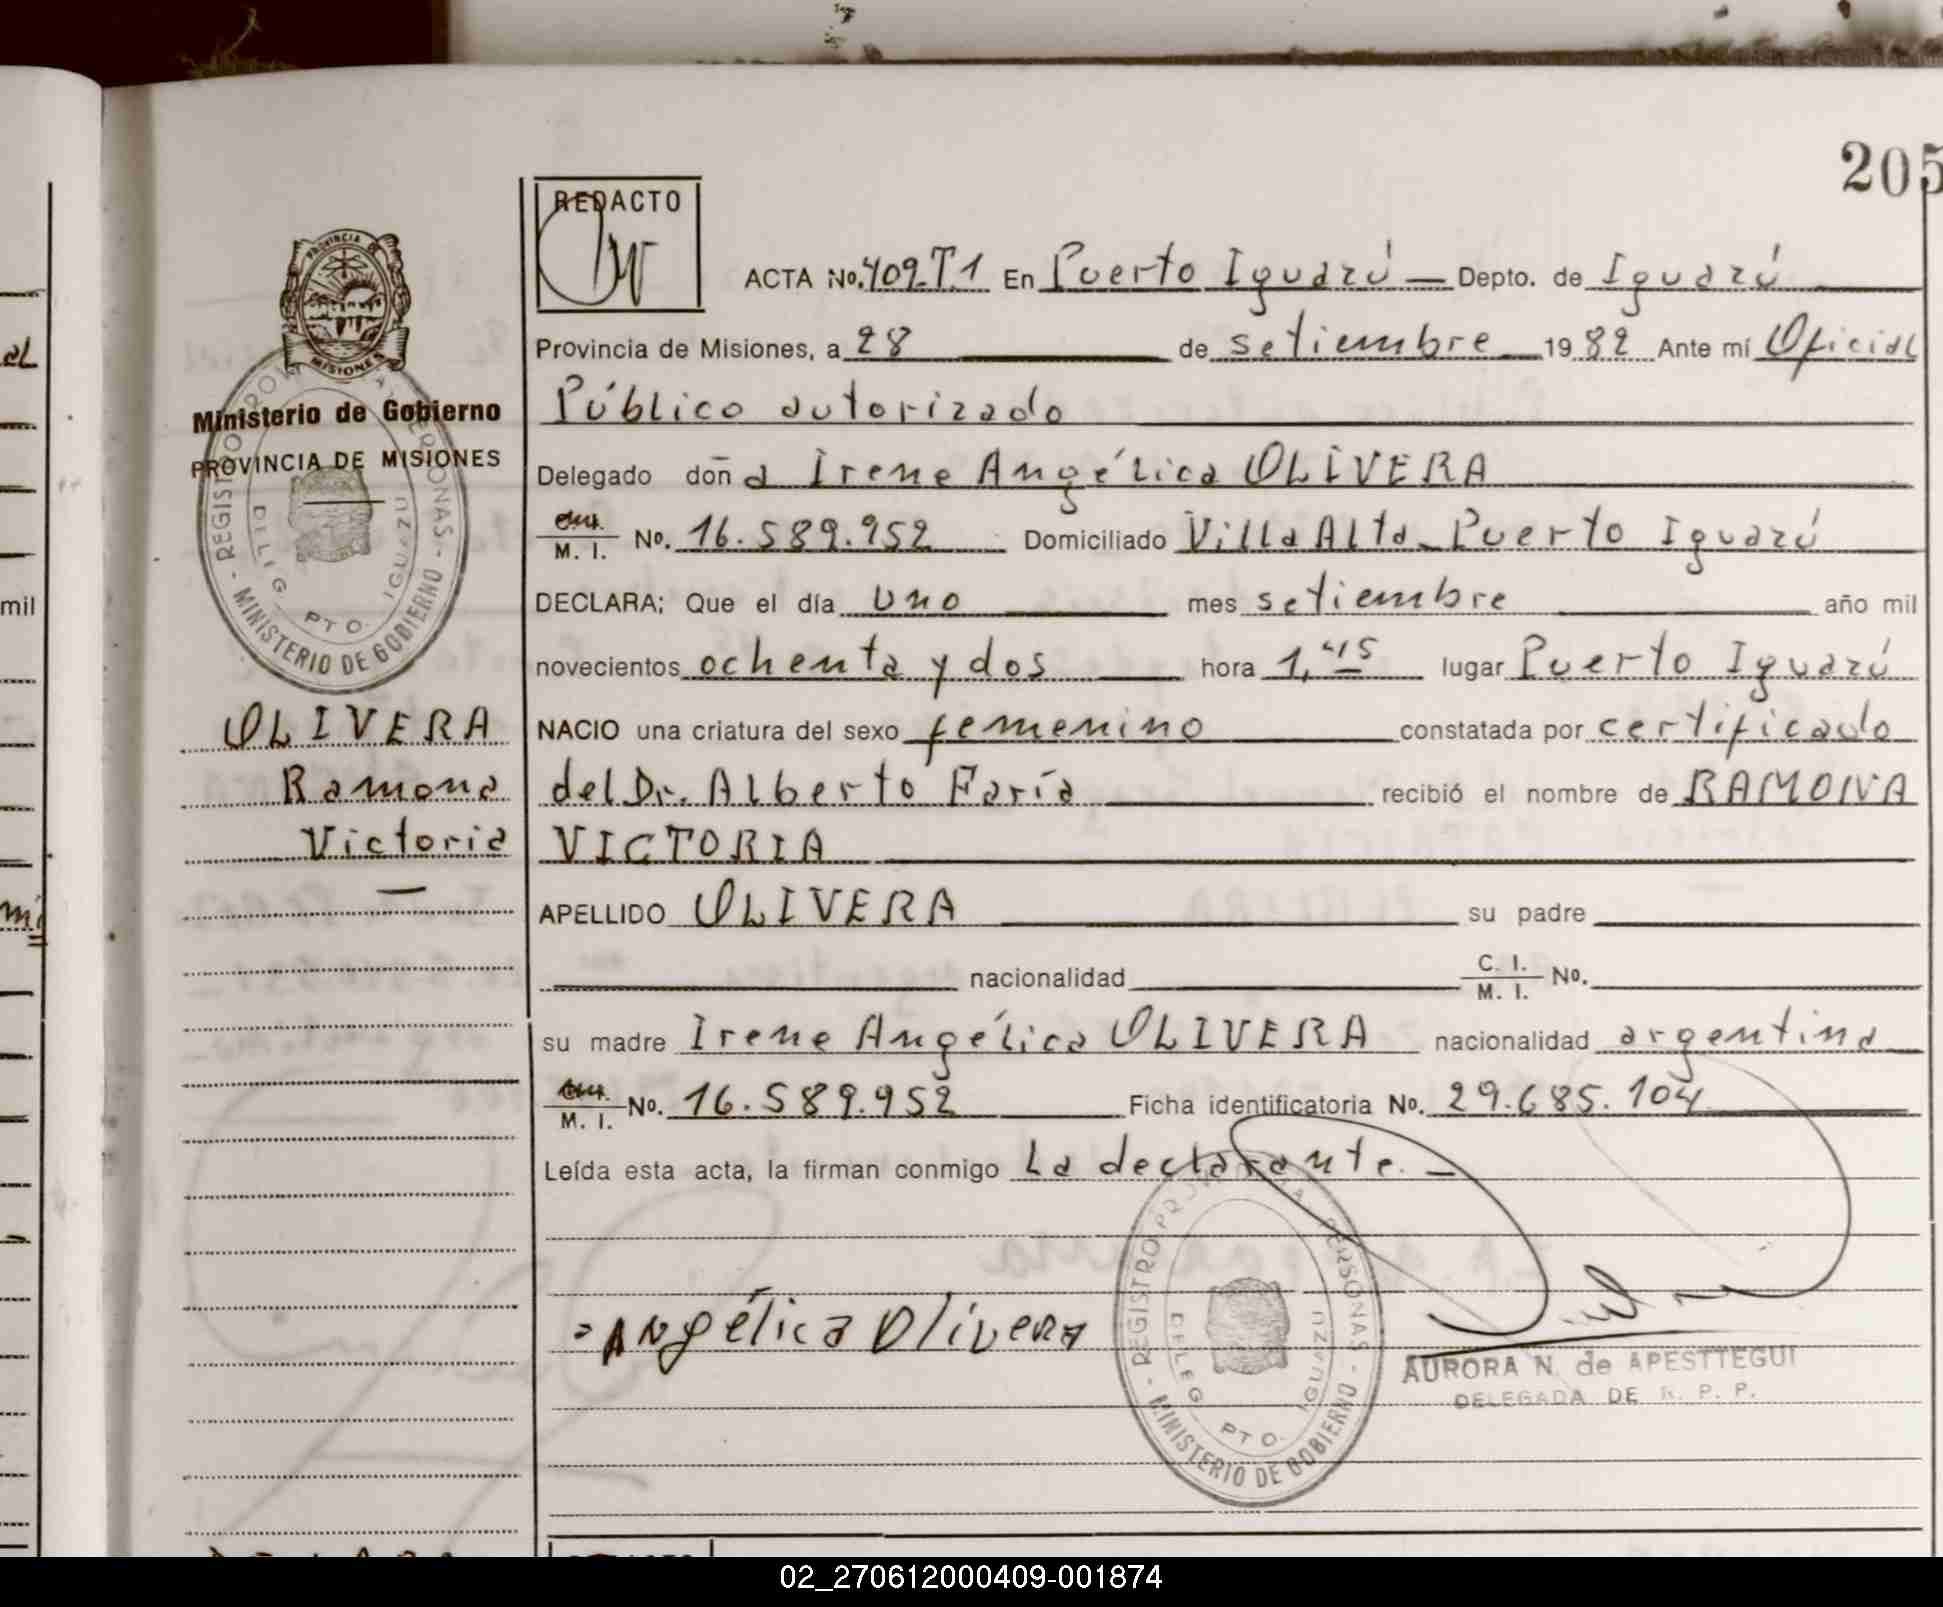 205
REDACTO
PROVINCIA DE
MISIONES
Ministerio de Gobierno
PROVINCIA DE MISIONES
ACTA No. 409.T.1 En Puerto Iguazú — Depto. de Iguazú
Provincia de Misiones, a 28 de setiembre 1982 Ante mí Oficial
Público autorizado
Delegado doña Irene Angélica OLIVERA
M. I. No. 16.589.952 Domiciliado Villa Alta - Puerto Iguazú
DECLARA; Que el día uno mes setiembre año mil
novecientos ochenta y dos hora 1,45 lugar Puerto Iguazú
NACIO una criatura del sexo femenino constatada por certificado
del Dr. Alberto Faría recibió el nombre de RAMONA
VICTORIA
APELLIDO OLIVERA su padre
nacionalidad C. I. / M. I. No.
su madre Irene Angélica OLIVERA nacionalidad argentina
M. I. No. 16.589.952 Ficha identificatoria No. 29.685.104
Leída esta acta, la firman conmigo La declarante. —
OLIVERA
Ramona
Victoria
—
Angélica Olivera
AURORA N. de APESTTEGUI
DELEGADA DE R. P. P.
MINISTERIO DE GOBIERNO
DELEG. PTO. IGUAZU
mil
02_270612000409-001874